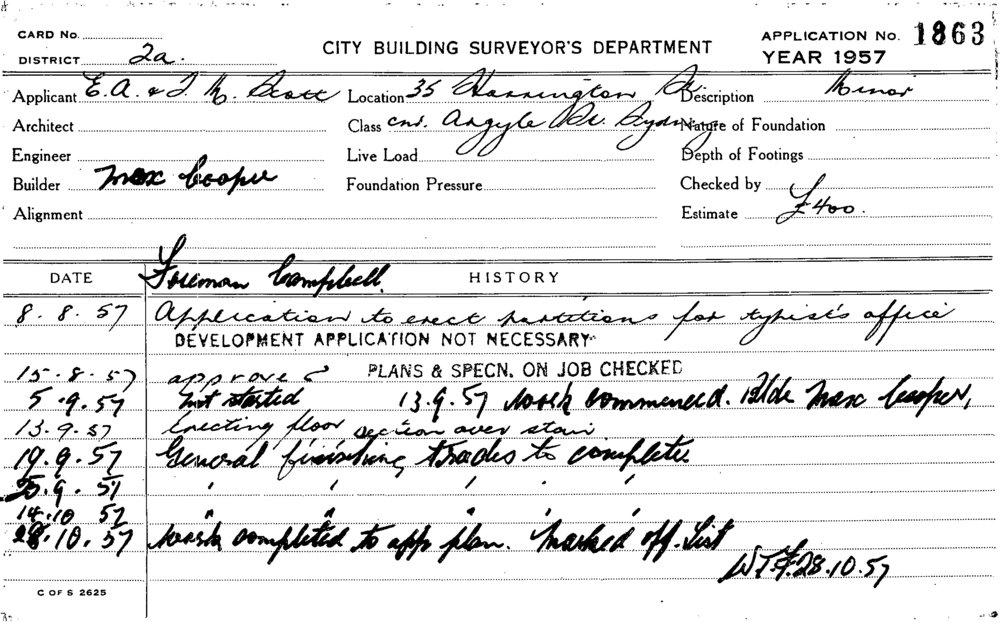 CARD No.
DISTRICT 2a.
CITY BUILDING SURVEYOR'S DEPARTMENT
APPLICATION No. 1863
YEAR 1957
Applicant E. A. & T. M. Scott Location 35 Harrington St. Description Minor
Architect Class cnr. Argyle St. Sydney Nature of Foundation
Engineer Live Load Depth of Footings
Builder Max Cooper Foundation Pressure Checked by
Alignment Estimate £400.
Foreman Campbell.
DATE HISTORY
8. 8. 57 Application to erect partitions for typist's office
DEVELOPMENT APPLICATION NOT NECESSARY
15. 8. 57 approved PLANS & SPECN. ON JOB CHECKED
5. 9. 57 Not started 13.9.57 work commenced. Bldr Max Cooper,
13. 9. 57 Erecting floor section over stair
19. 9. 57 General finishing trades to complete
25. 9. 57 " " " "
14. 10 57 " " " "
28. 10. 57 work completed to app plan. Marked off. List
28.10.57
C OF S 2625